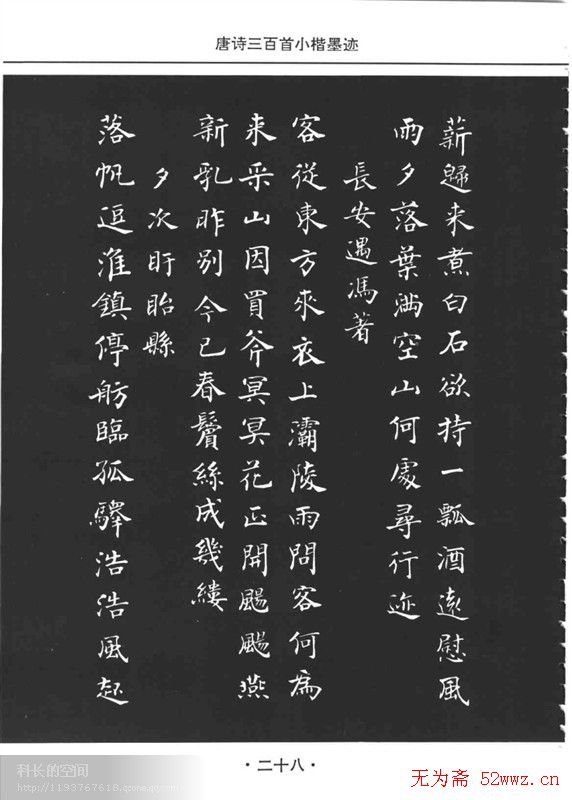 唐诗三百首小楷墨迹
薪歸来煮白石欲持一瓢酒遠慰風
雨夕落葉滿空山何處尋行迹
長安遇馮著
客從東方來衣上灞陵雨問客何為
来采山因買斧冥冥花正開颺颺燕
新乳昨别今已春鬢絲成幾縷
夕次盱眙縣
落帆逗淮鎮停舫臨孤驛浩浩風起
·二十八·
科长的空间
http://1193767618.qzone.qq.com
无为斋 52wwz.cn